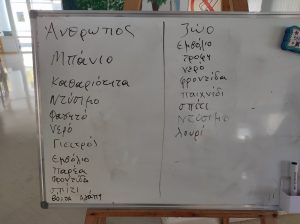 Άνθρωπος
Μπάνιο
Καθαριότητα
Ντύσιμο
Φαγητό
Νερό
Γιατρός
Εμβόλιο
Παρέα
Φροντίδα
σπίτι
βόλτα Αγάπη
Ζώο
Εμβόλιο
τροφή
νερό
φροντίδα
παιχνίδι
σπίτι
Ντύσιμο
λουρί